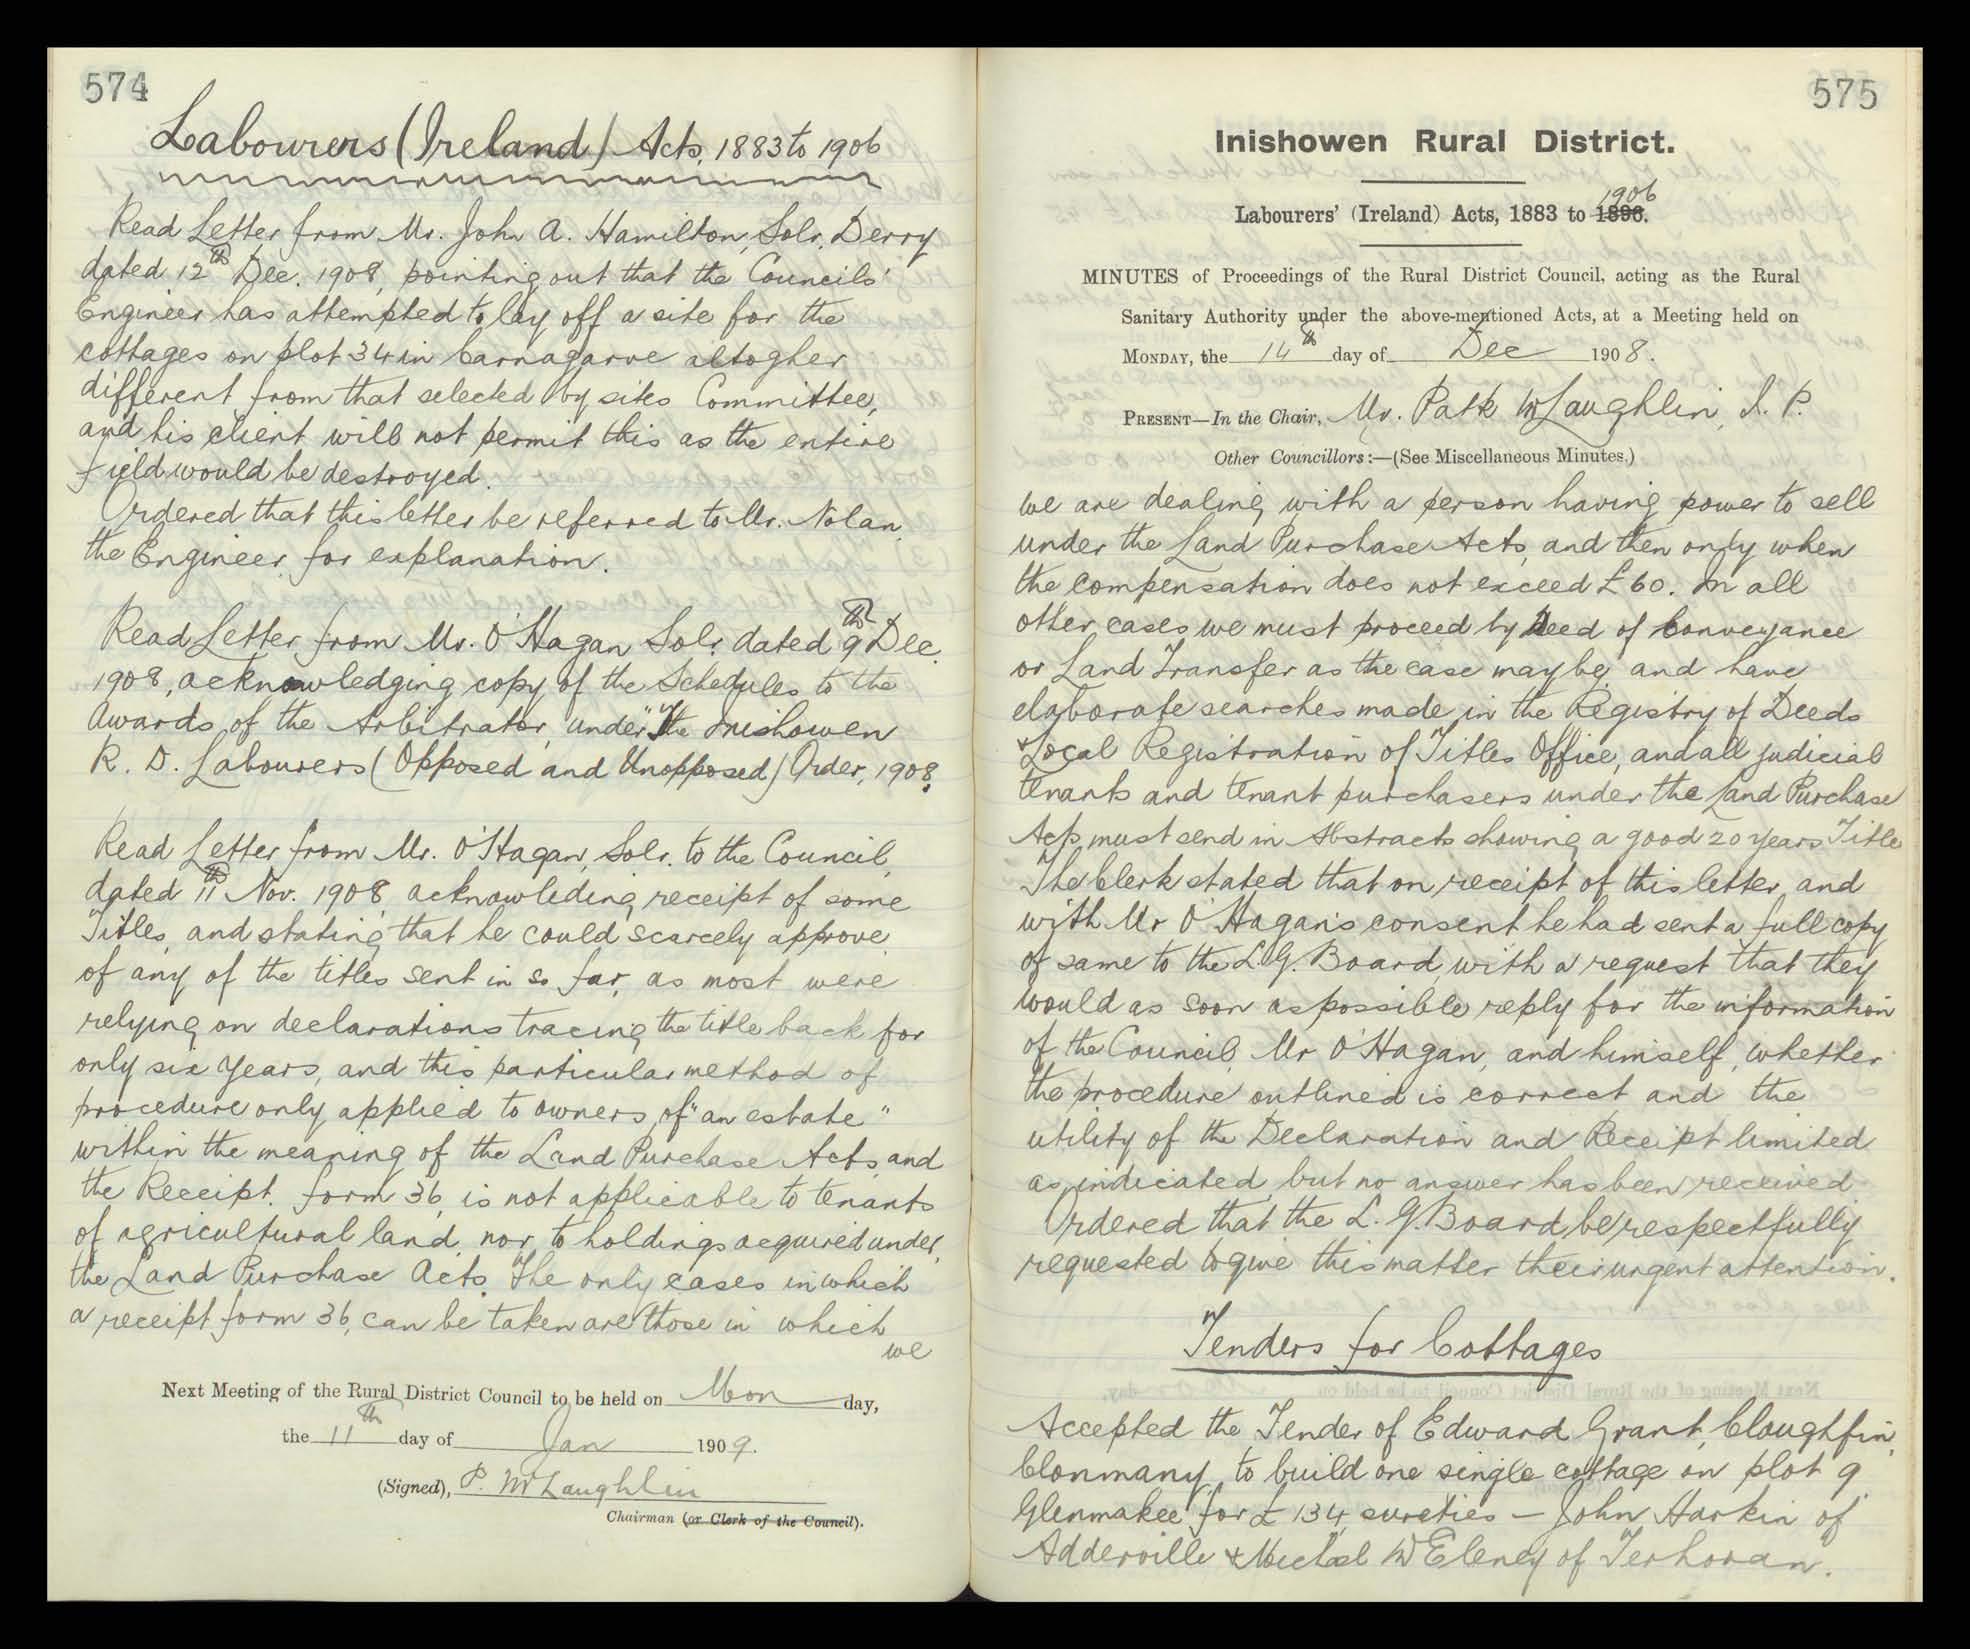 574
Labourers (Ireland) Acts, 1883 to 1906
Read Letter from Mr. John A. Hamilton, Solr, Derry
dated 12th Dec. 1908, pointing out that the Councils'
Engineer has attempted to lay off a site for the
cottages on plot 34 in Carnagarve altogher
different from that selected by sites Committee,
and his client will not permit this as the entire
field would be destroyed.
Ordered that this letter be referred to Mr. Nolan,
the Engineer for explanation.
Read Letter from Mr. O'Hagan Solr. dated 9th Dec.
1908, acknowledging copy of the Schedules to the
Awards of the Arbitrator under "The Inishowen
R. D. Labourers (Opposed and Unopposed) Order, 1908.
Read Letter from Mr. O'Hagan, Solr. to the Council,
dated 11th Nov. 1908, acknowleding receipt of some
Titles, and stating that he could scarcely approve
of any of the titles sent in so far, as most were
relying on declarations tracing the title back for
only six years, and this particular method of
procedure only applied to owners of "an estate"
within the meaning of the Land Purchase Acts and
the Receipt. form 36, is not applicable to tenants
of agricultural land, nor to holdings acquired under
the Land Purchase Acts. The only cases in which
a receipt form 36, can be taken are those in which
we
Next Meeting of the Rural District Council to be held on Mon day,
the 11th day of Jan 1909.
(Signed), P. McLaughlin
Chairman (or Clerk of the Council).
575
Inishowen Rural District.
1906
Labourers' (Ireland) Acts, 1883 to 1896.
MINUTES of Proceedings of the Rural District Council, acting as the Rural
Sanitary Authority under the above-mentioned Acts, at a Meeting held on
MONDAY, the 14th day of Dec 1908.
PRESENT—In the Chair, Mr. Patk McLaughlin, J. P.
Other Councillors:—(See Miscellaneous Minutes.)
we are dealing with a person having power to sell
under the Land Purchase Acts, and then only when
the compensation does not exceed £60. In all
other cases we must proceed by Deed of Conveyance
or Land Transfer as the case may be, and have
elaborate searches made in the Registry of Deeds
& Local Registration of Titles Office, and all judicial
tenants and tenant purchasers under the Land Purchase
Acts must send in Abstracts showing a good 20 years Title
The Clerk stated that on receipt of this letter and
with Mr O'Hagan's consent he had sent a full copy
of same to the L.G. Board with a request that they
would as soon as possible reply for the information
of the Council, Mr O'Hagan, and himself, whether
the procedure outlined is correct and the
utility of the Declaration and Receipt limited
as indicated, but no answer has been received
Ordered that the L. G. Board be respectfully
requested to give this matter their urgent attention.
Tenders for Cottages
Accepted the Tender of Edward Grant, Cloughfin,
Clonmany, to build one single cottage on plot 9
Glenmakee for £134, sureties - John Harkin of
Adderville & Micheal McEleney of Terhoran.